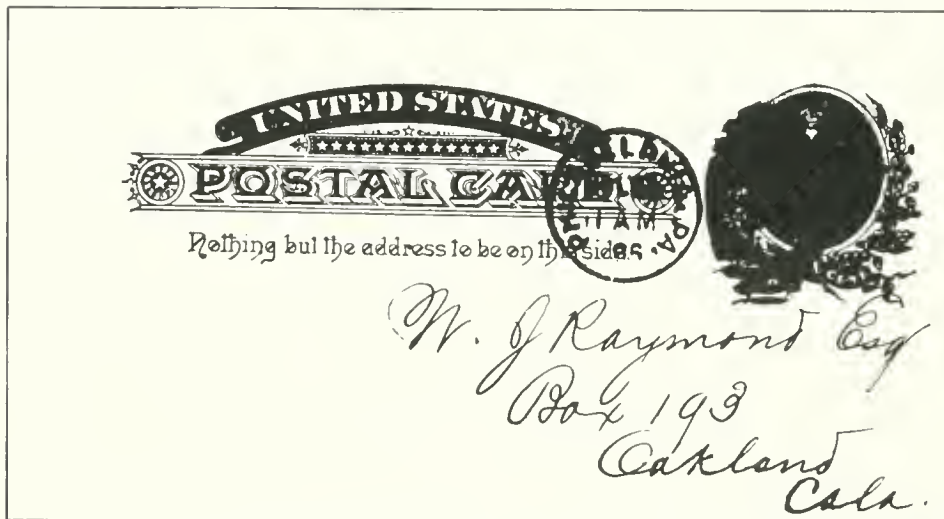 UNITED STATES
POSTAL CARD
Nothing but the address to be on this side.
PA.
11 AM
86
W. J Raymond Esq
Box 193
Oakland
Cala.